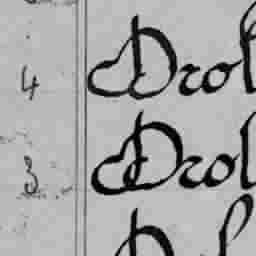 4 Drol
3 Drol